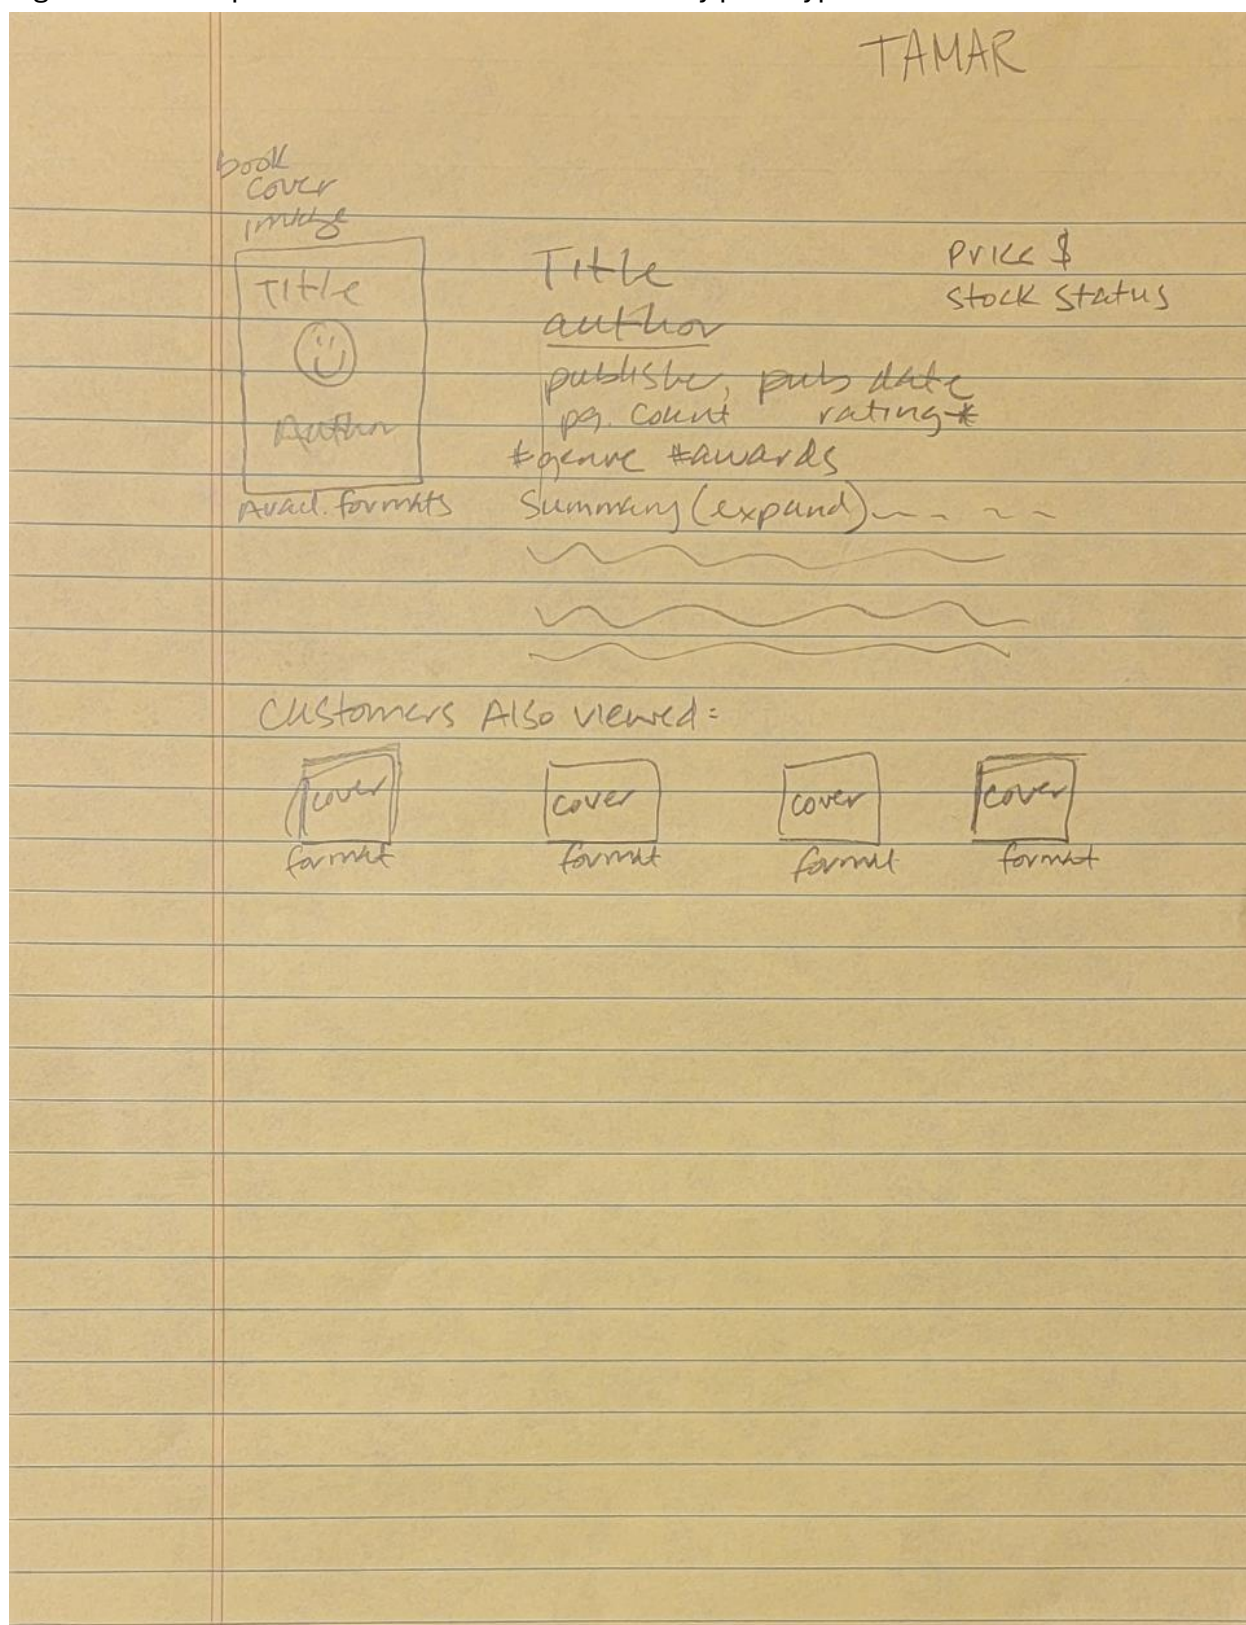 TAMAR
book
cover
image
Title
Author
Avail. formats
Title
author
publisher, pub date
pg. count rating *
#genre #awards
Summary (expand)
Price $
Stock Status
Customers Also viewed:
cover cover cover cover
format format format format